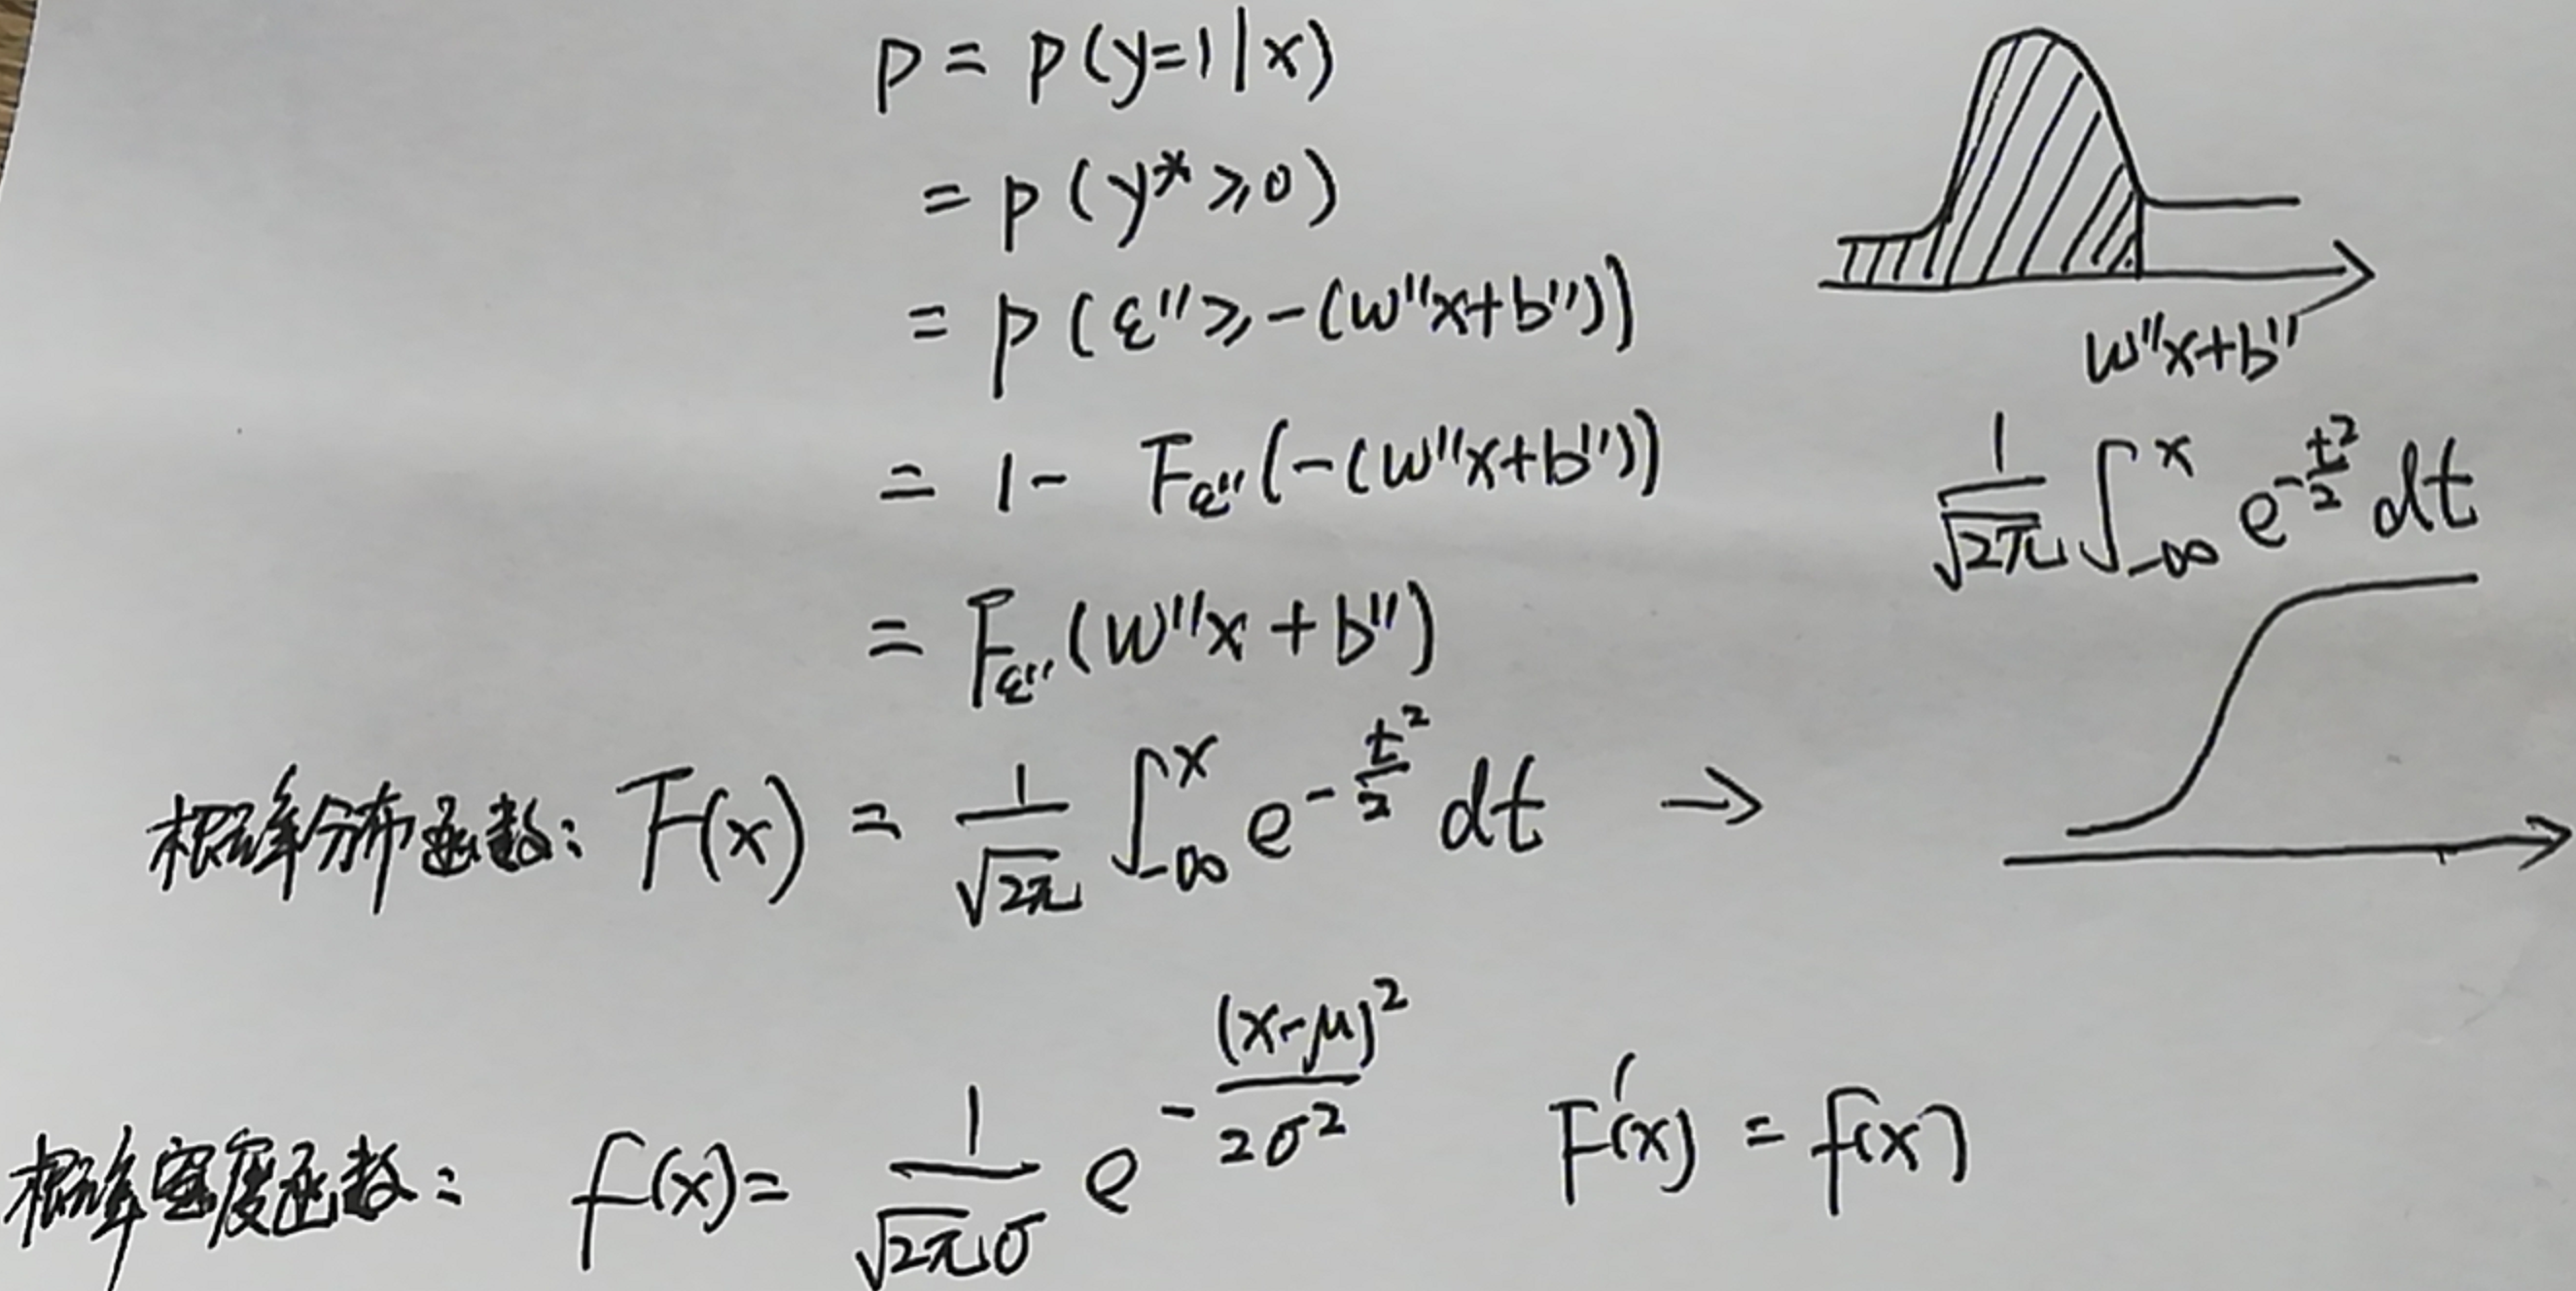 P = P(y=1|x)
= P(y* ⩾ 0)
= P(ε'' ⩾ -(w''x+b''))
= 1 - F_ε''(-(w''x+b''))
= F_ε''(w''x + b'')
w''x+b''
1/√2π ∫_-∞^x e^(-t²/2) dt
概率分布函数: F(x) = 1/√2π ∫_-∞^x e^(-t²/2) dt →
概率密度函数: f(x) = 1/(√2π σ) e^(-(x-μ)²/2σ²) F'(x) = f(x)